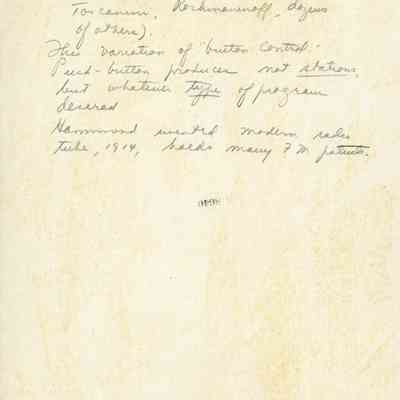 Toscanini, Rachmaninoff, dozens
of others).
His variation of "button control."
Push-button produces not stations,
but whatever type of program
desired
Hammond invented modern radio
tube, 1914, holds many F M patents.